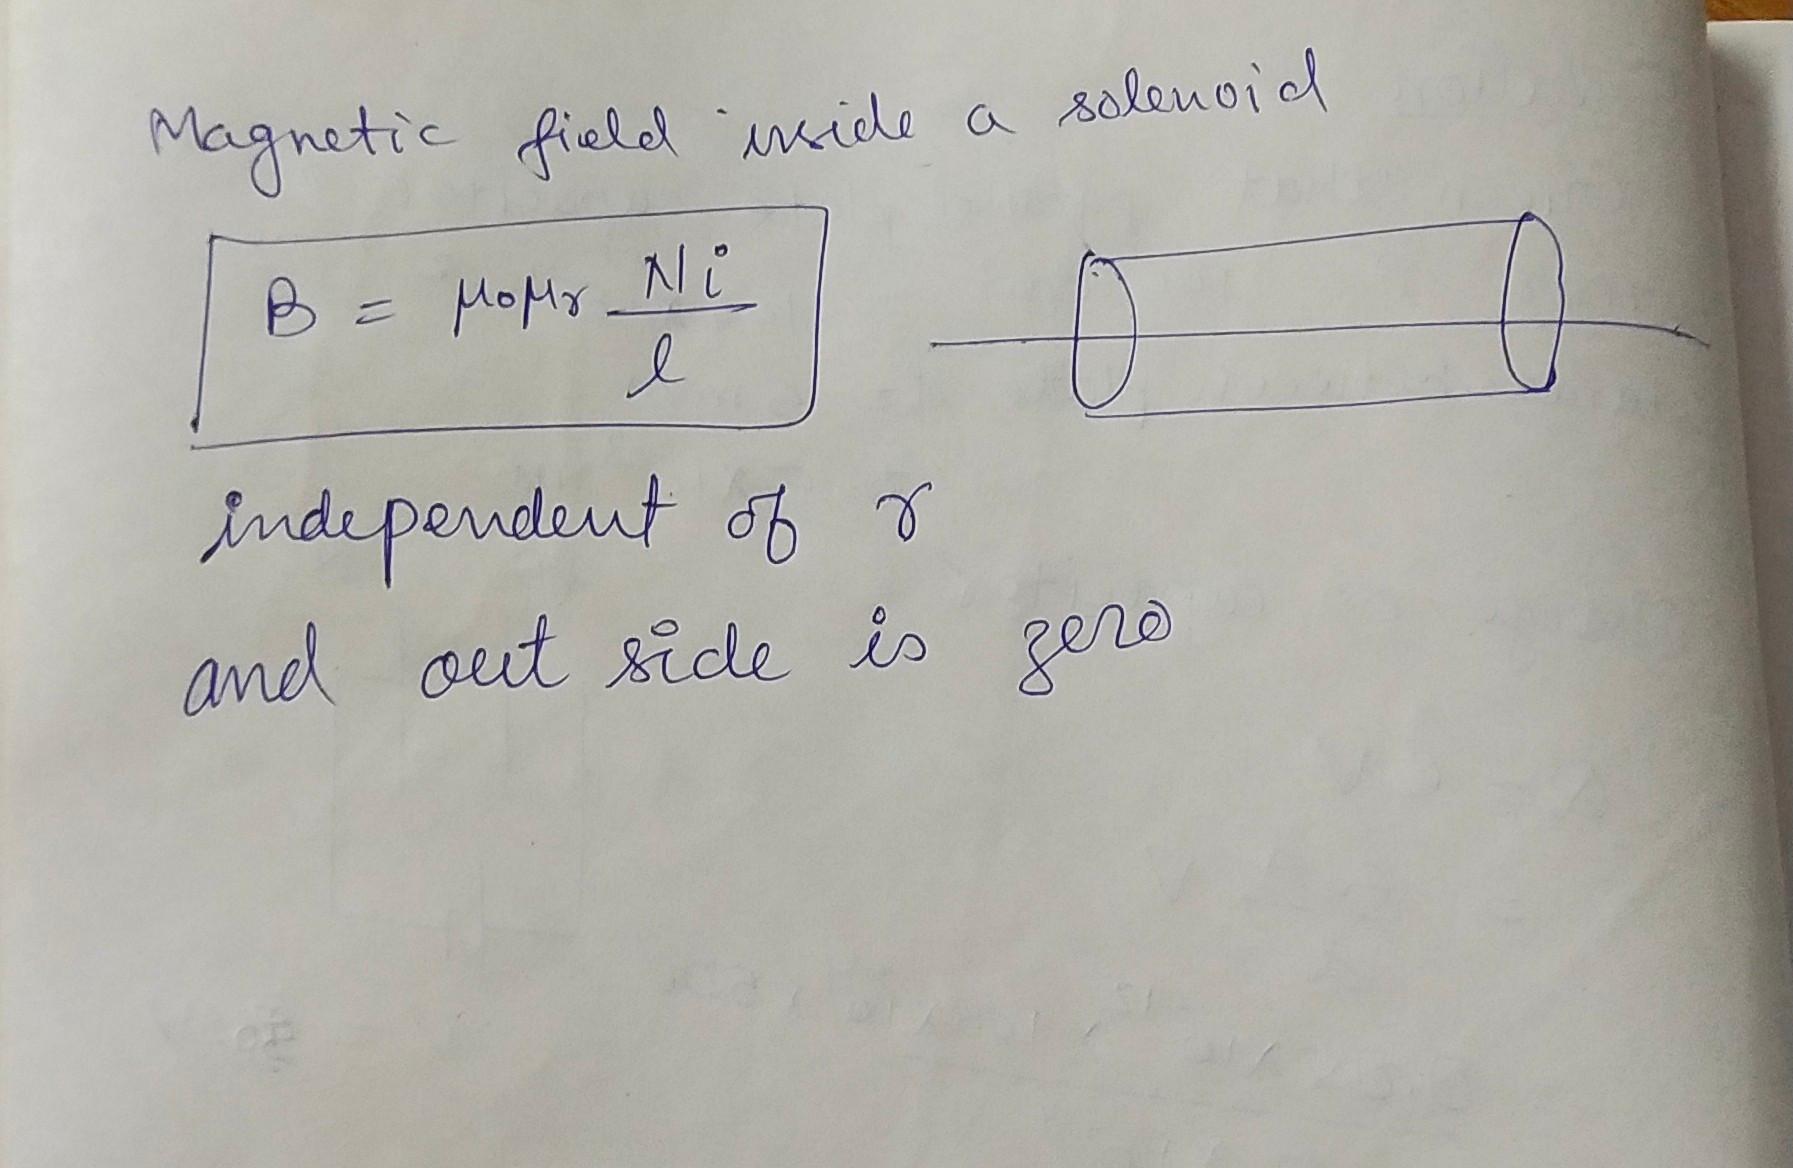 Magnetic field inside a solenoid
B = μ₀μᵣ Ni/l
independent of r
and out side is zero